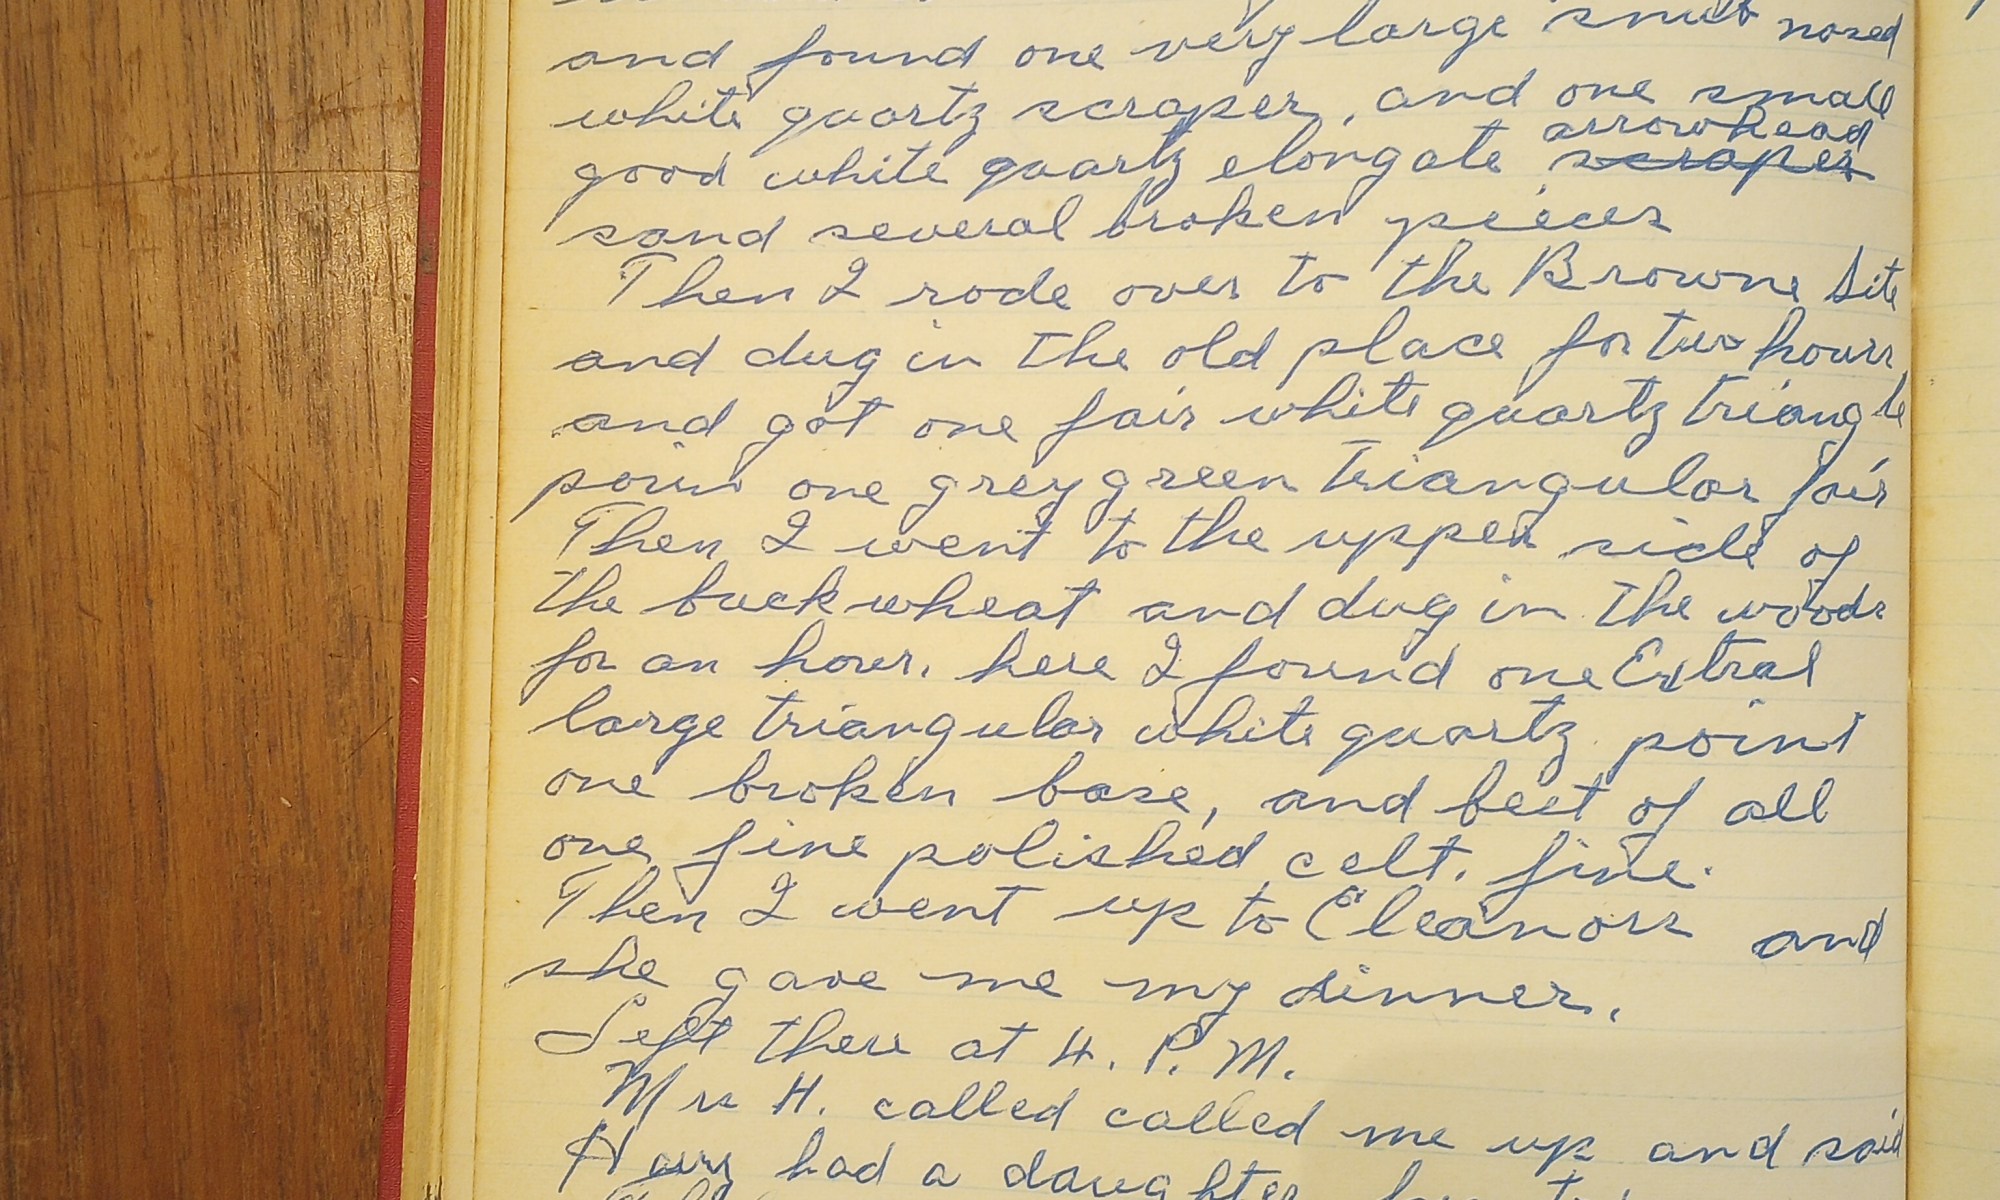 and found one very large snub nosed
white quartz scraper, and one small
arrowhead
good white quartz elongate scraper
sand several broken pieces
Then I rode over to the Browne Site
and dug in the old place for two hours
and got one fair white quartz triangle
point one grey green triangular fair
Then I went to the upper side of
the buckwheat and dug in the woods
for an hour. here I found one Extral
large triangular white quartz point
one broken base, and best of all
one fine polished celt. fine.
Then I went up to Eleanors and
she gave me my dinner.
Left there at 4. P. M.
Mrs H. called called me up and said
had a daughter